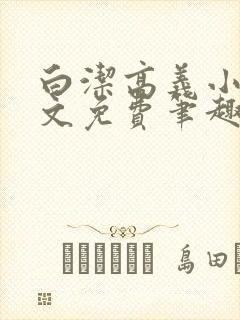 白潔高義小
文免費筆趣
島田